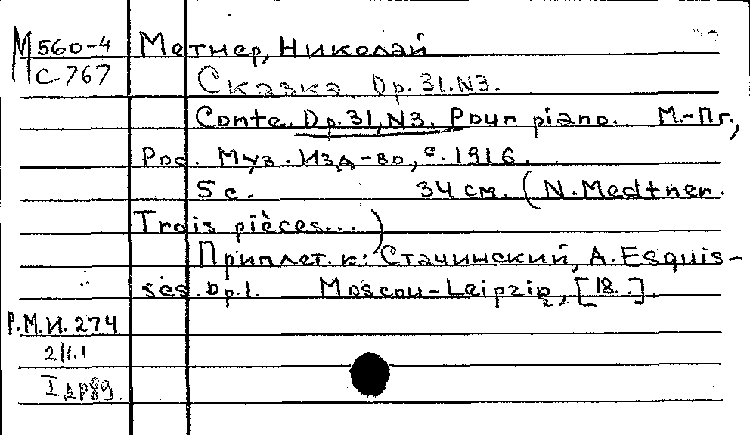 М 560-4 Метнер, Николай
С-767 Сказка Op. 31. N3.
Conte. Op. 31, N3. Pour piano. М.-Пг.,
Рос. Муз. Изд-во, с. 1916.
5 с. 34 см. (N. Medtner.
Trois pièces...)
Приплет. к: Стачинский, А. Esquis-
ses. Op. 1. Moscou-Leipzig, [18..].
Р.М.И. 274
2/II.1
I др89.